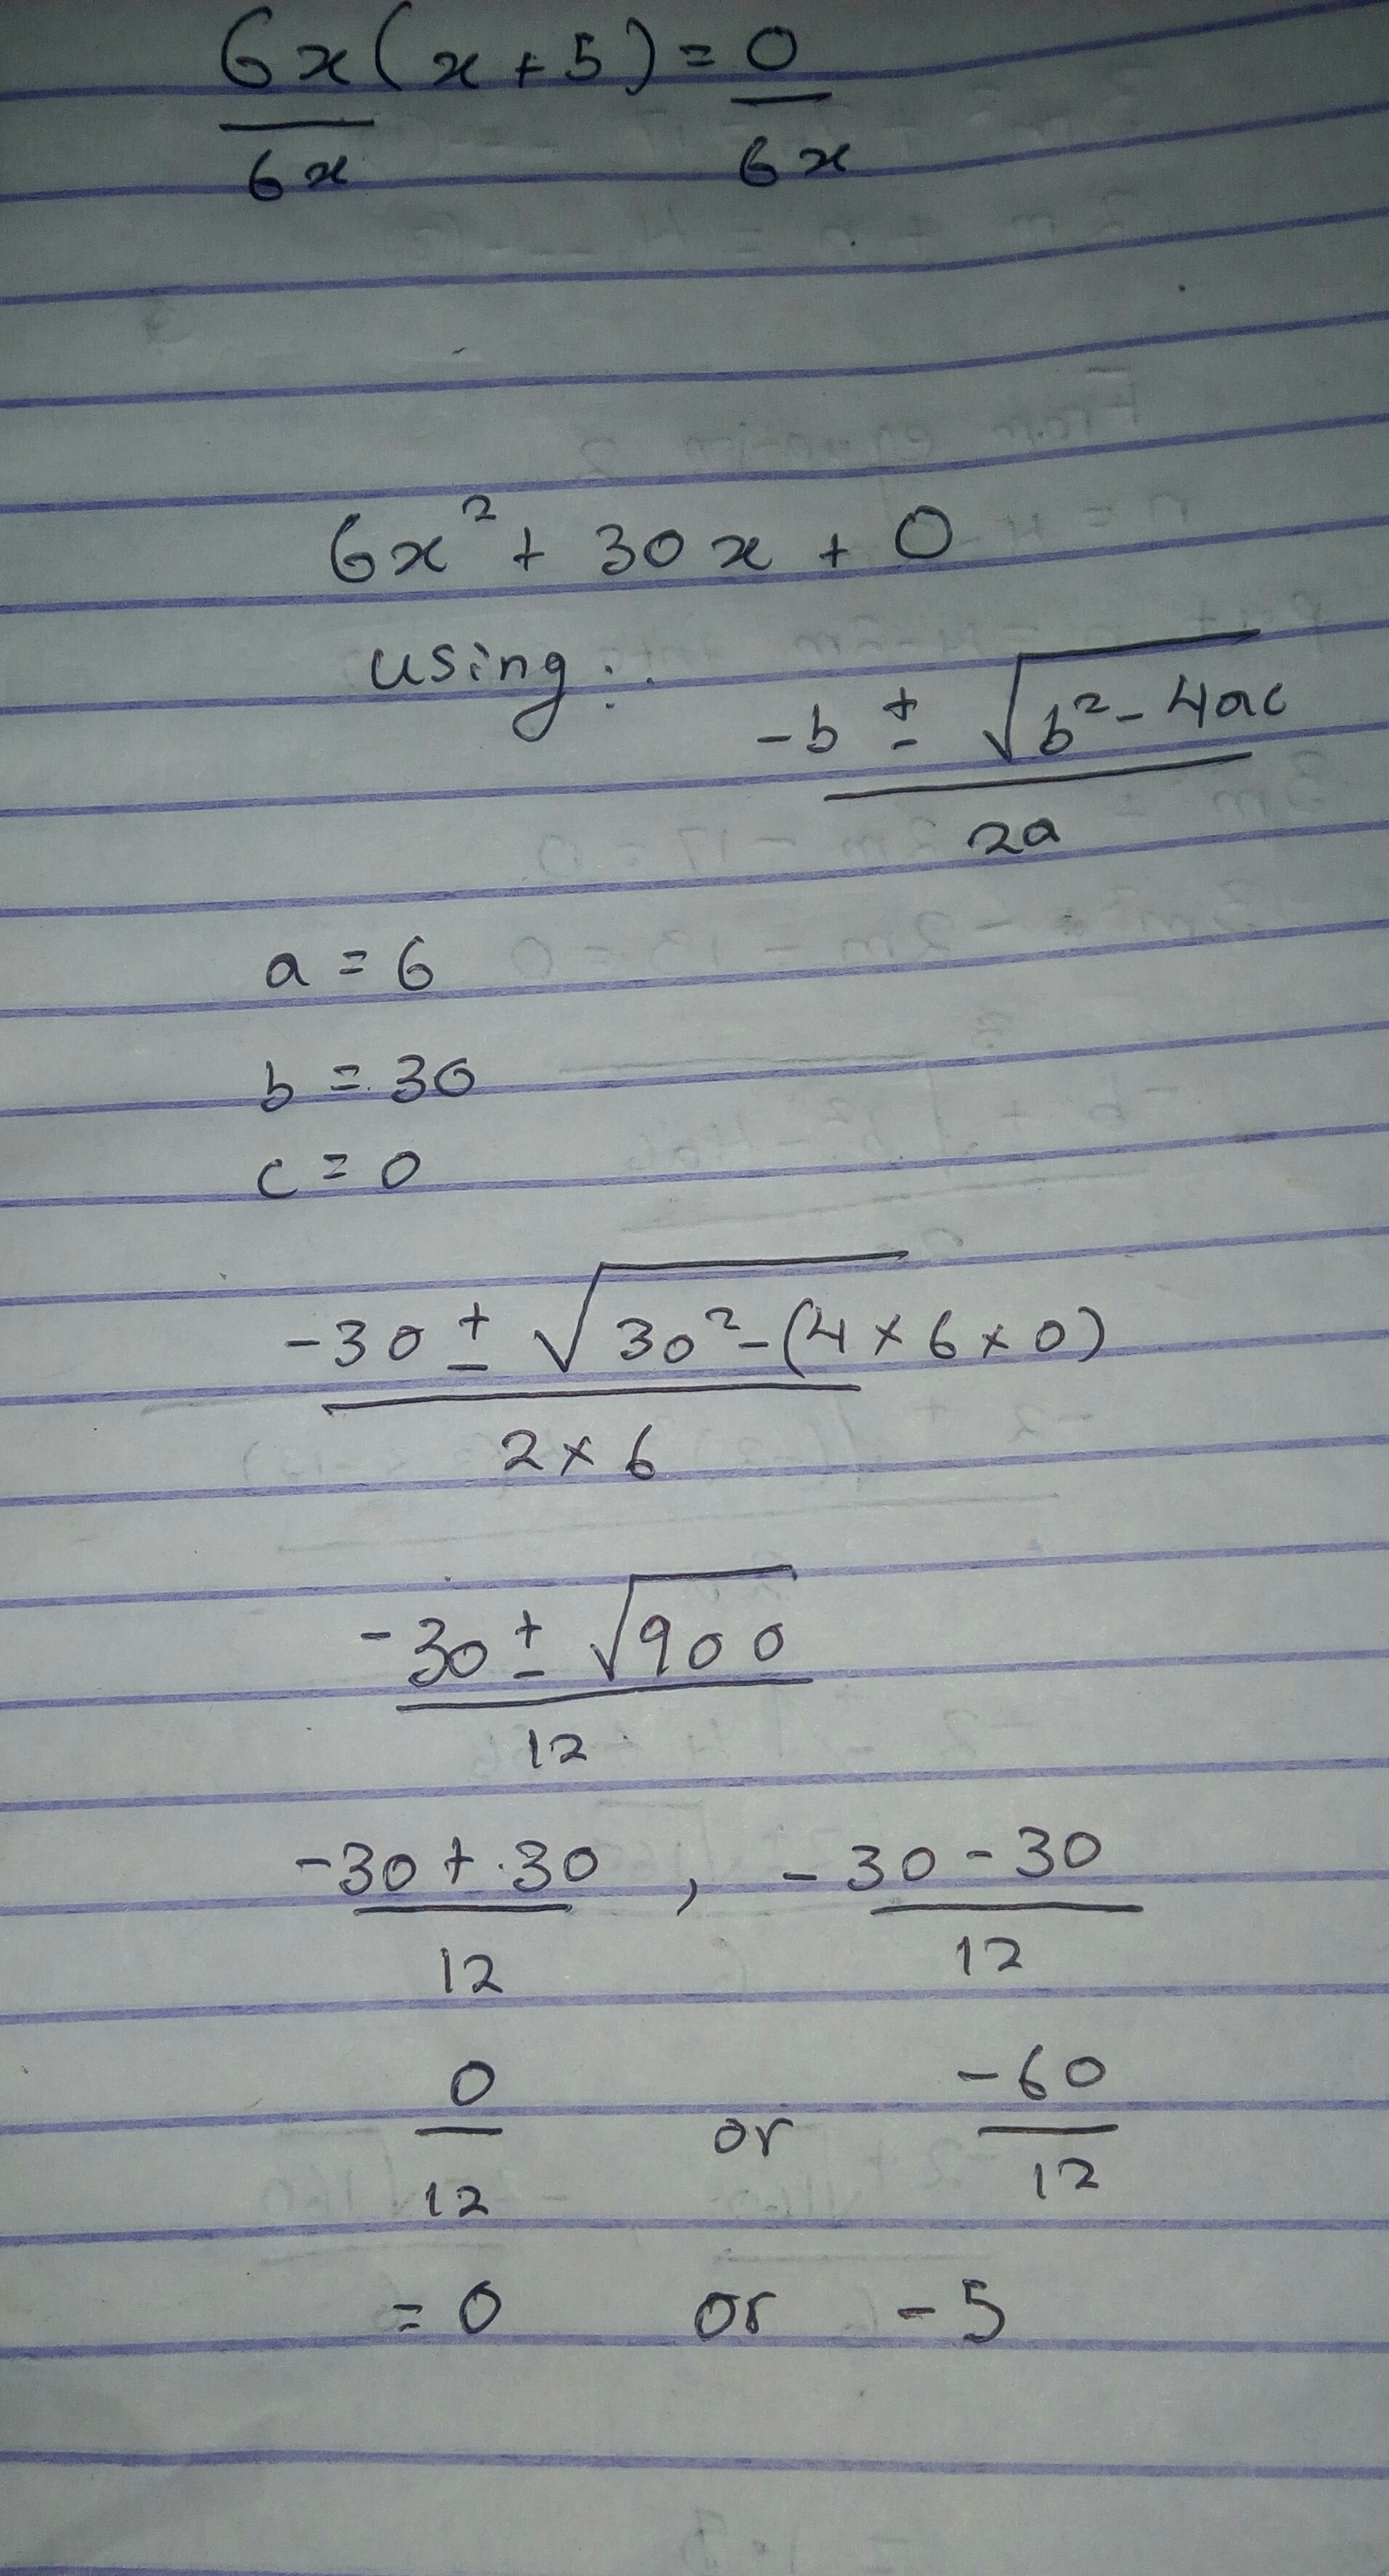 6x(x+5) = 0
6x 6x
6x² + 30x + 0
using:.
-b ± √b²-4ac
2a
a = 6
b = 30
c = 0
-30 ± √30²-(4×6×0)
2×6
-30 ± √900
12
-30+30 , -30-30
12 12
0 or -60
12 12
= 0 or -5